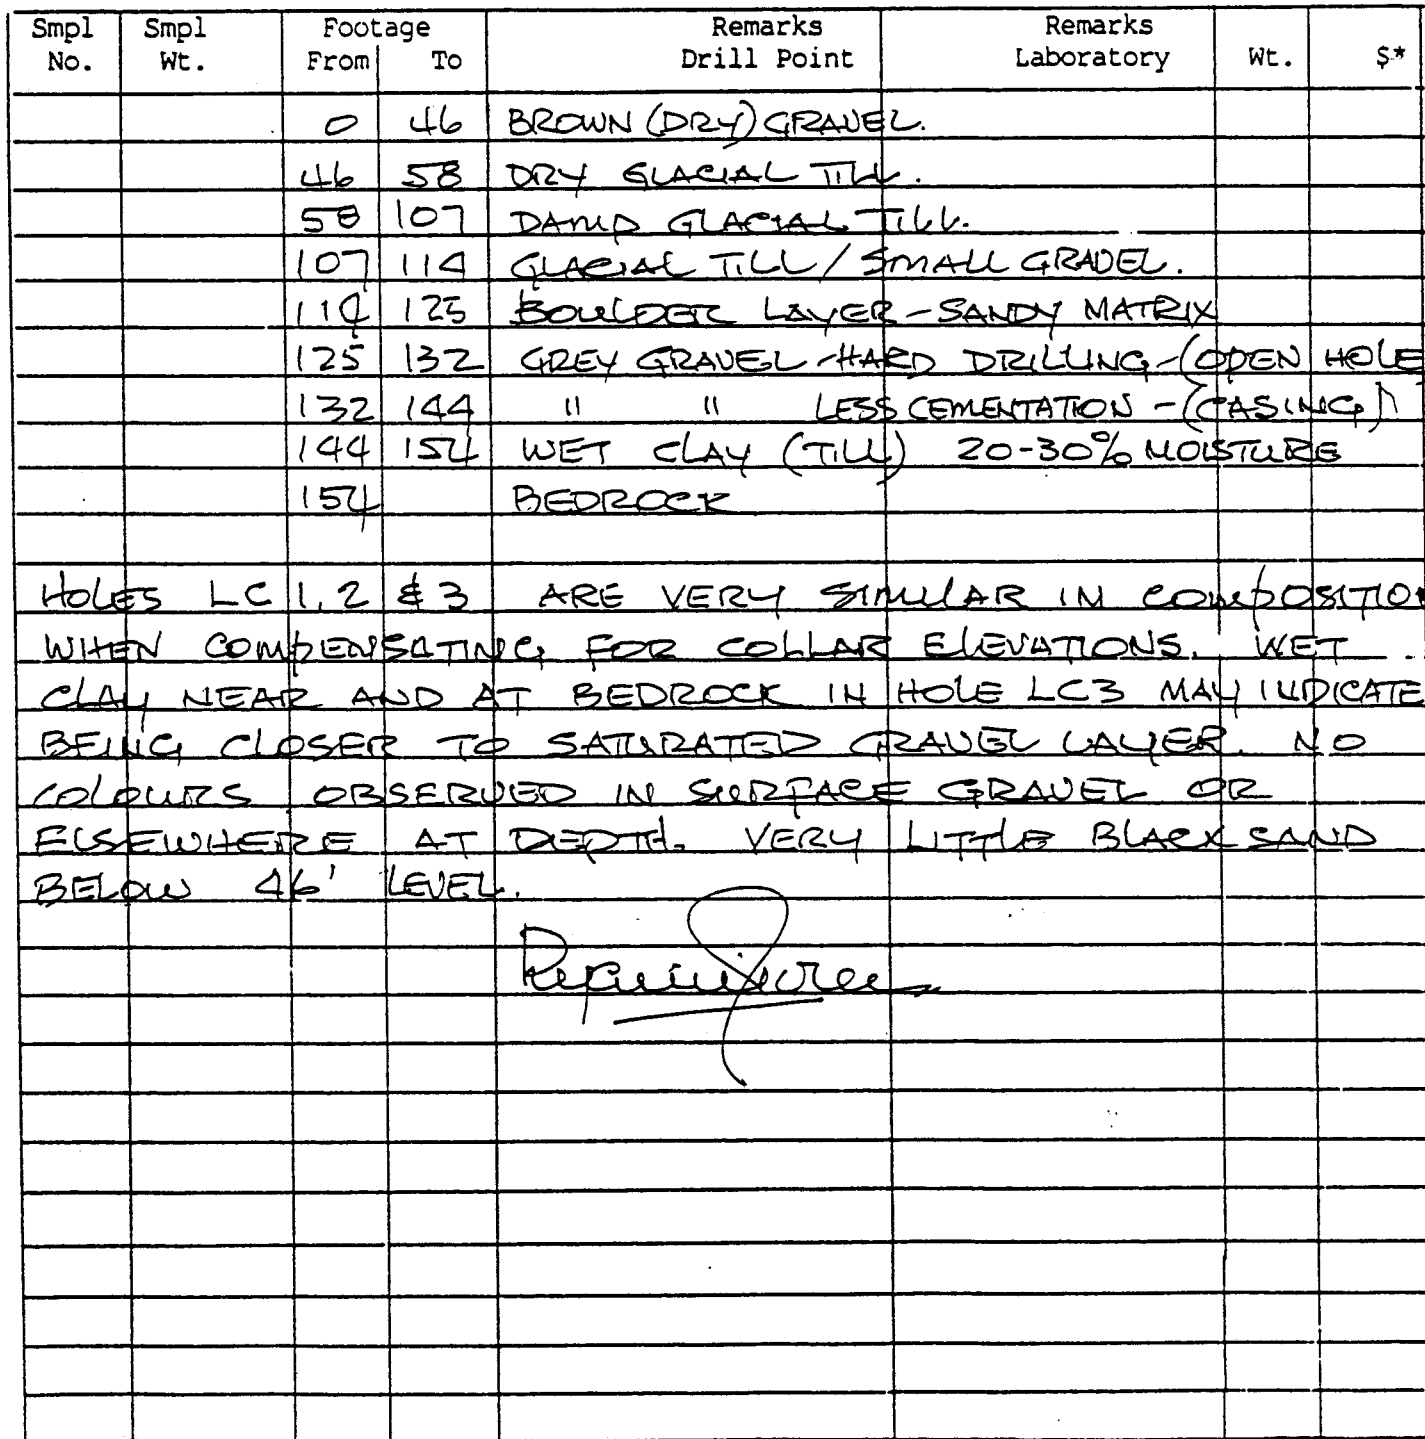 Smpl Smpl Footage Remarks Remarks
No. Wt. From To Drill Point Laboratory Wt. $*
0 46 BROWN (DRY) GRAVEL.
46 58 DRY GLACIAL TILL.
58 107 DAMP GLACIAL TILL.
107 114 GLACIAL TILL / SMALL GRAVEL.
114 125 BOULDER LAYER - SANDY MATRIX
125 132 GREY GRAVEL - HARD DRILLING - (OPEN HOLE
132 144 " " LESS CEMENTATION - (CASING)
144 154 WET CLAY (TILL) 20-30% MOISTURE
154 BEDROCK
HOLES LC 1, 2 & 3 ARE VERY SIMILAR IN COMPOSITION
WHEN COMPENSATING FOR COLLAR ELEVATIONS. WET
CLAY NEAR AND AT BEDROCK IN HOLE LC3 MAY INDICATE
BEING CLOSER TO SATURATED GRAVEL LAYER. NO
COLOURS OBSERVED IN SURFACE GRAVEL OR
ELSEWHERE AT DEPTH. VERY LITTLE BLACK SAND
BELOW 46' LEVEL.